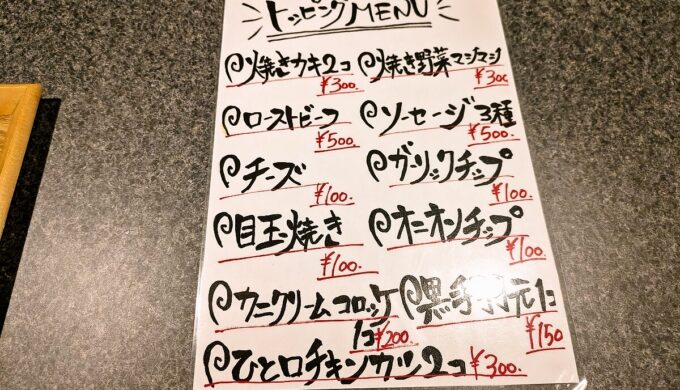 トッピングMENU
焼きカキ2コ ¥300.
焼き野菜マシマシ ¥300
ローストビーフ ¥500.
ソーセージ3種 ¥500.
チーズ ¥100.
ガーリックチップ ¥100.
目玉焼き ¥100.
オニオンチップ ¥100.
カニクリームコロッケ
1コ ¥200.
黒手 元1コ ¥150
ひと口チキンカツ2コ ¥300.